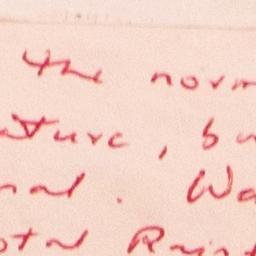 the norm
ature, bu
nal. Wa
otal Rain